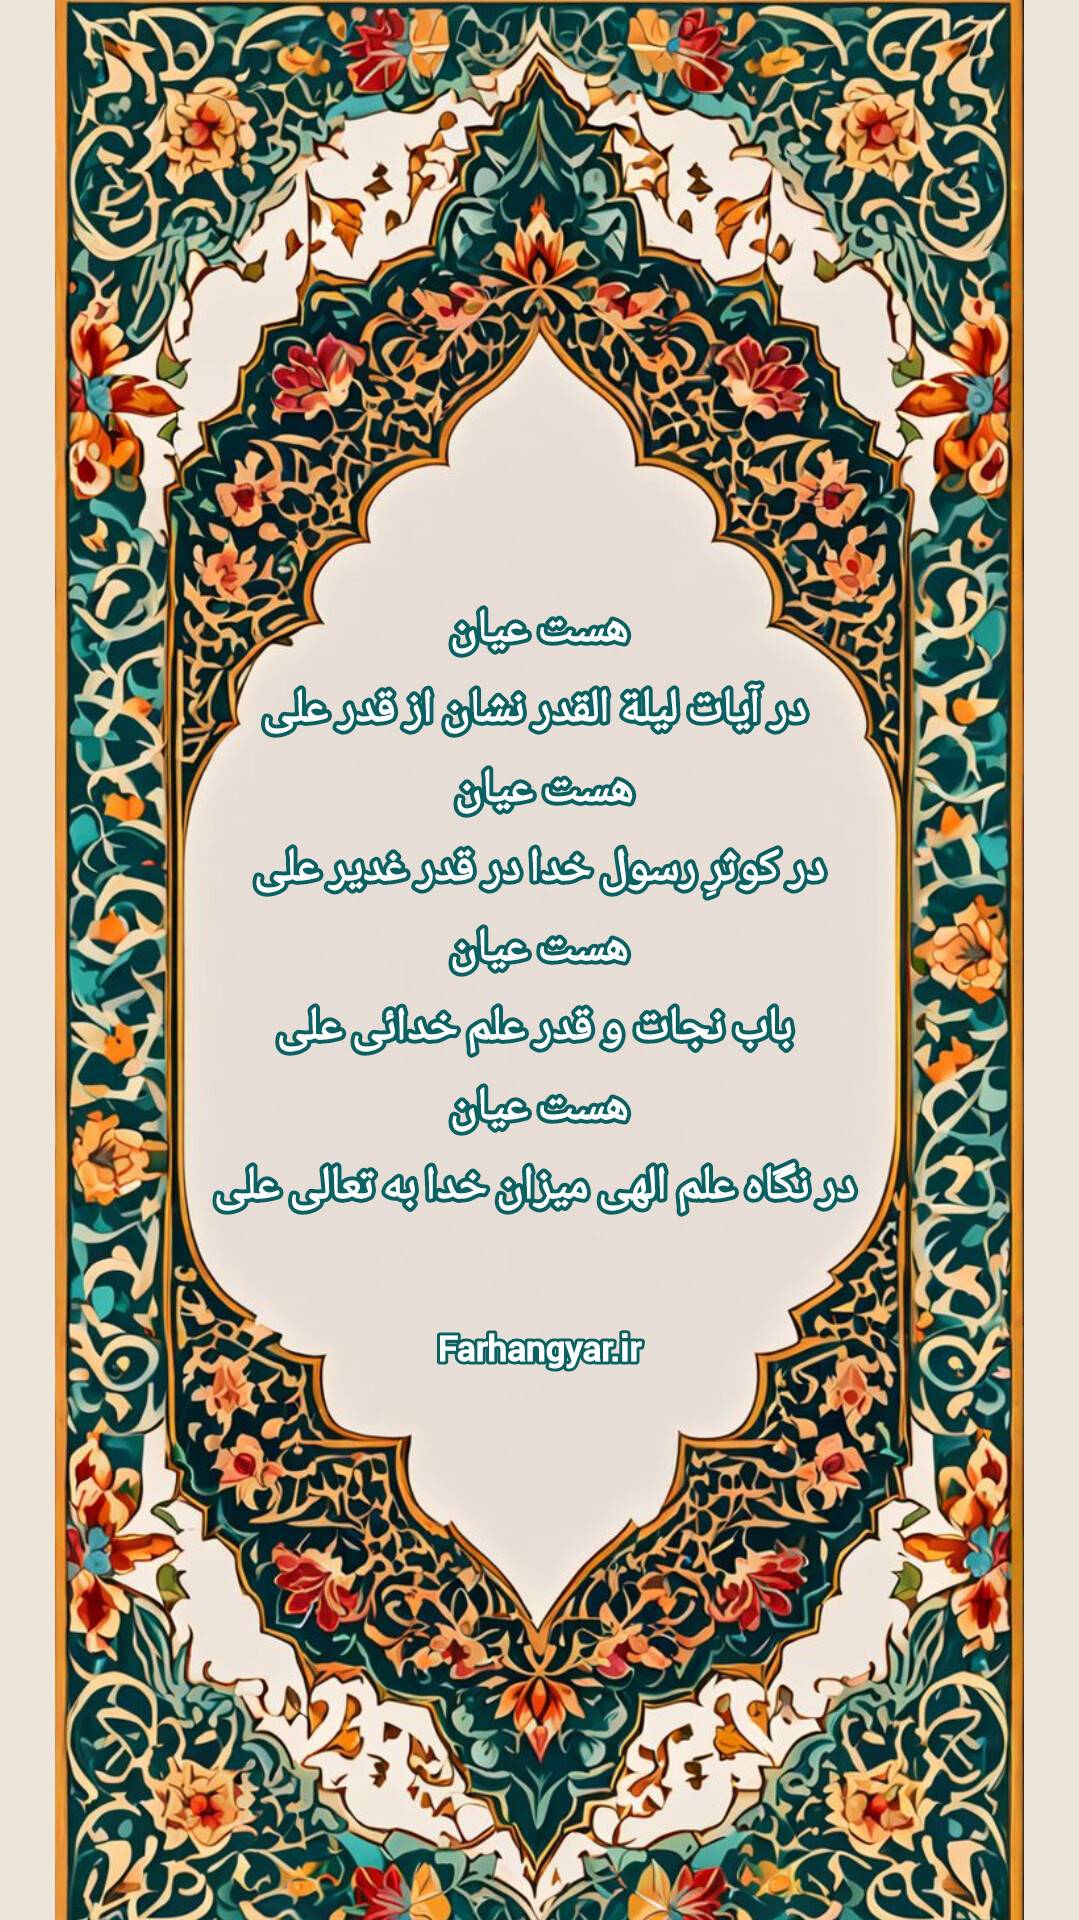 هست عیان
در آیات لیلة القدر نشان از قدر علی
هست عیان
در کوثرِ رسول خدا در قدر غدیر علی
هست عیان
باب نجات و قدر علم خدائی علی
هست عیان
در نگاه علم الهی میزان خدا به تعالی علی
Farhangyar.ir